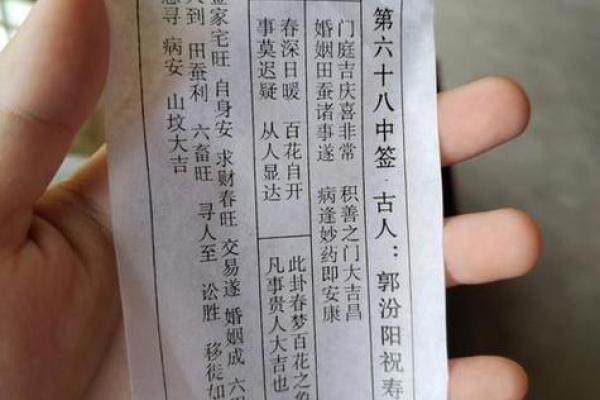 第六十八中签·古人：郭汾阳祝寿
门庭吉庆喜非常 积善之门大吉昌
婚姻田蚕诸事遂 病逢妙药即安康
春深日暖 百花自开
事莫迟疑 从人显达
此卦春梦百花之象
凡事贵人大吉也
家宅旺 自身安 求财春旺 交易遂 婚姻成 六
人到 田蚕利 六畜旺 寻人至 讼胜 移徙如
急寻 病安 山坟大吉